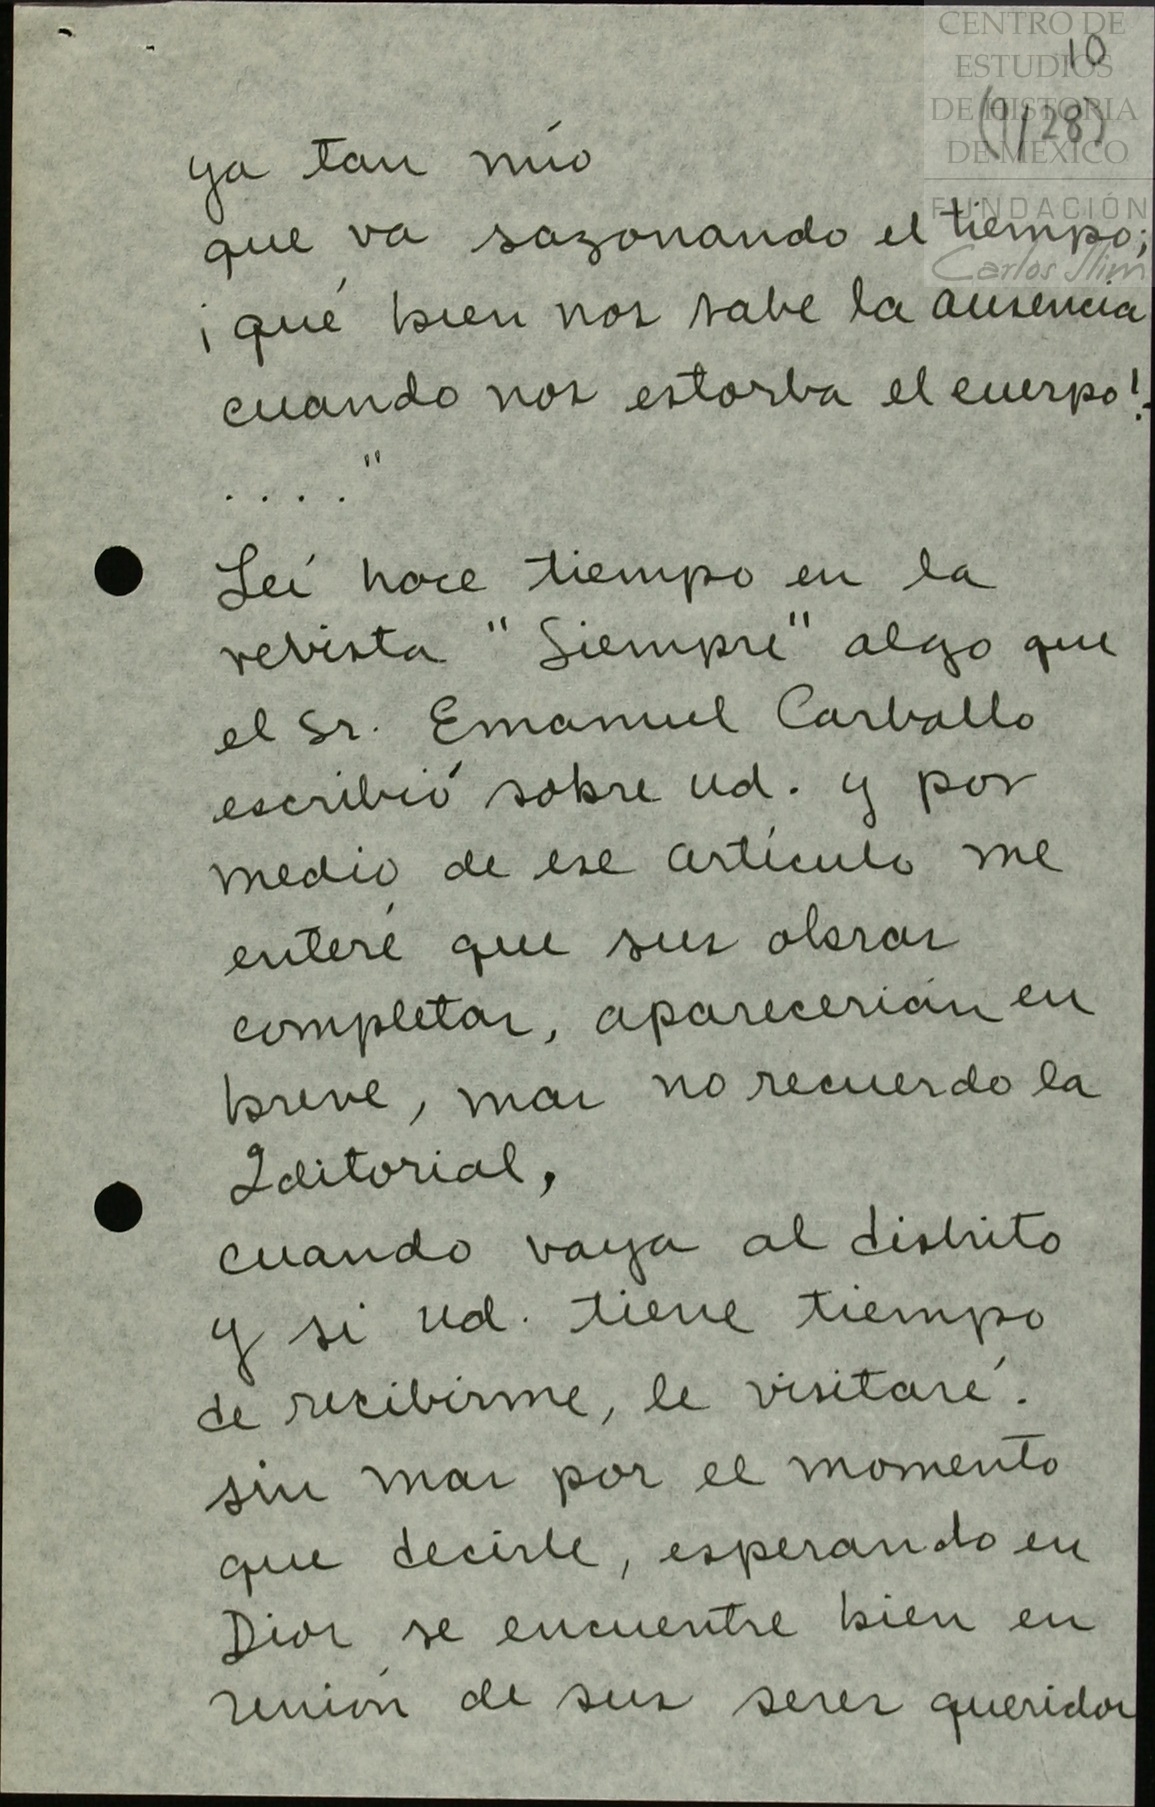 CENTRO DE
ESTUDIOS
DE HISTORIA
DE MÉXICO
FUNDACIÓN
Carlos Slim
10
(1/28)
ya tan mío
que va sazonando el tiempo;
¡qué bien nos sabe la ausencia
cuando nos estorba el cuerpo!.
...."
Leí hace tiempo en la
revista "Siempre" algo que
el Sr. Emanuel Carballo
escribió sobre ud. y por
medio de ese artículo me
enteré que sus obras
completas, aparecerían en
breve, mas no recuerdo la
Editorial,
cuando vaya al distrito
y si ud. tiene tiempo
de recibirme, le visitaré.
sin mas por el momento
que decirle, esperando en
Dios se encuentre bien en
unión de sus seres queridos